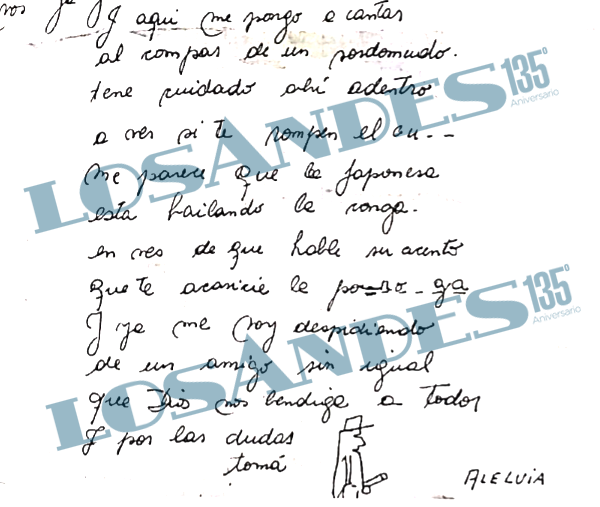 Y aqui me pongo a cantar
al compas de un sordomudo.
tene cuidado ahi adentro
a ves si te rompen el cu--
Me parece que la Japonesa
esta bailando la conga.
en ves de que hable su acento
que te acaricie la
Y ya me voy despidiendo
de un amigo sin igual
que Dios nos bendiga a todos
Y por las dudas
tomá
ALELUIA
LOS ANDES 135° Aniversario
LOS ANDES 135° Aniversario